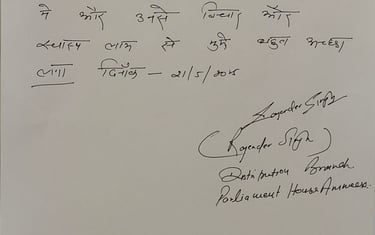 में और उनसे विचार और
स्वास्थ्य लाभ से मुझे बहुत अच्छा
लगा दिनाँक — 21/5/2015
Rajender Singh
(Rajender Singh)
Distribution Branch
Parliament House Annexe.